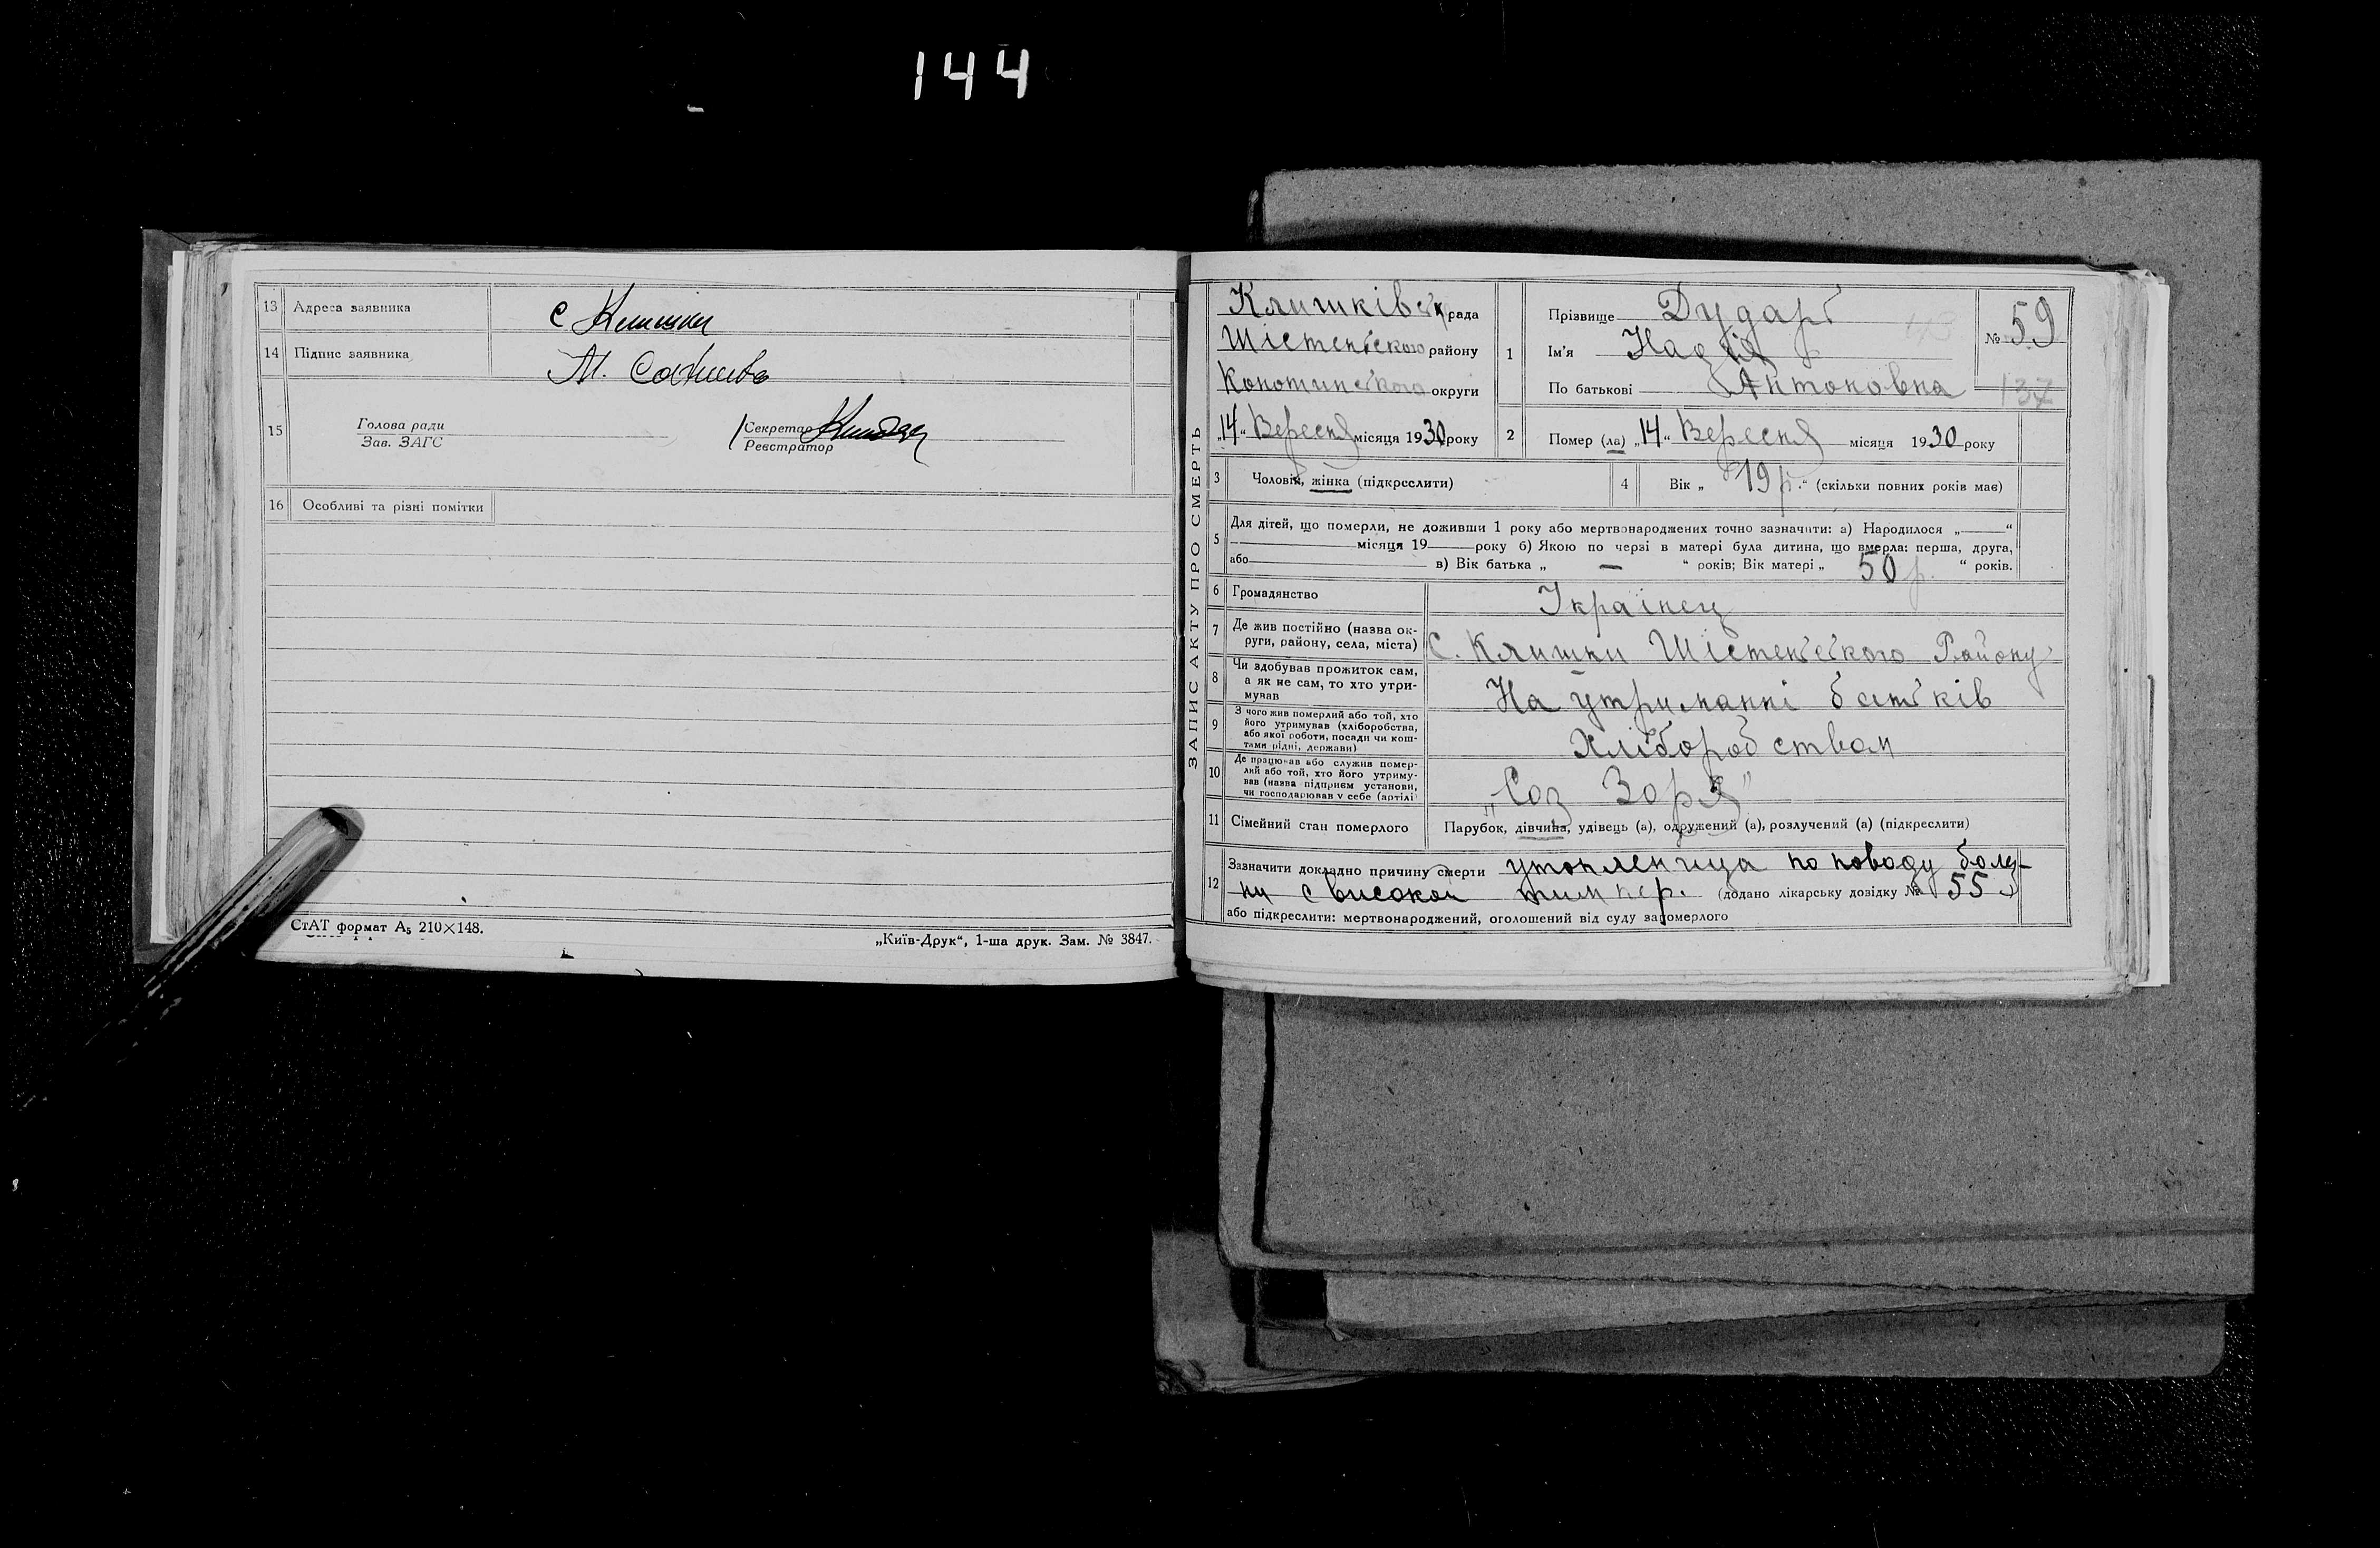 144
13 Адреса заявника с Клишки
14 Підпис заявника М.
15 Голова ради
Зав. ЗАГС
Секретар
Реєстратор
16 Особливі та різні помітки
СтАТ формат А5 210×148.
„Київ-Друк“, 1-ша друк. Зам. № 3847.
ЗАПИС АКТУ ПРО СМЕРТЬ
Клишківськ рада
Шістенського району
Конотипського округи
„14“ Вересня місяця 1930 року
1 Прізвище Дударь
Ім'я Надія
По батькові Антоновна
№ 59
137
2 Помер (ла) „14“ Вересня місяця 1930 року
3 Чоловік, жінка (підкреслити)
4 Вік „19 р.“ (скільки повних років має)
5 Для дітей, що померли, не доживши 1 року або мертвонароджених точно зазначити: а) Народилося „—“
місяця 19— року б) Якою по черзі в матері була дитина, що вмерла: перша, друга,
або в) Вік батька „ — “ років; Вік матері „ 50 р. “ років.
6 Громадянство Українец
7 Де жив постійно (назва ок-
руги, району, села, міста) С. Клишки Шістенського Району
8 Чи здобував прожиток сам,
а як не сам, то хто утри-
мував На утриманні батьків
9 З чого жив померлий або той, хто
його утримував (хліборобства,
або якої роботи, посади чи кош-
тами рідні, держави) Хліборобством
10 Де працював або служив помер-
лий або той, хто його утриму-
вав (назва підприєм установи,
чи господарював у себе (артілі) „Соз Зоря“
11 Сімейний стан померлого Парубок, дівчина, удівець (а), одружений (а), розлучений (а) (підкреслити)
12 Зазначити докладно причину смерти утопленица по поводу
с високой темпер. (додано лікарську довідку № 55)
або підкреслити: мертвонароджений, оголошений від суду за померлого